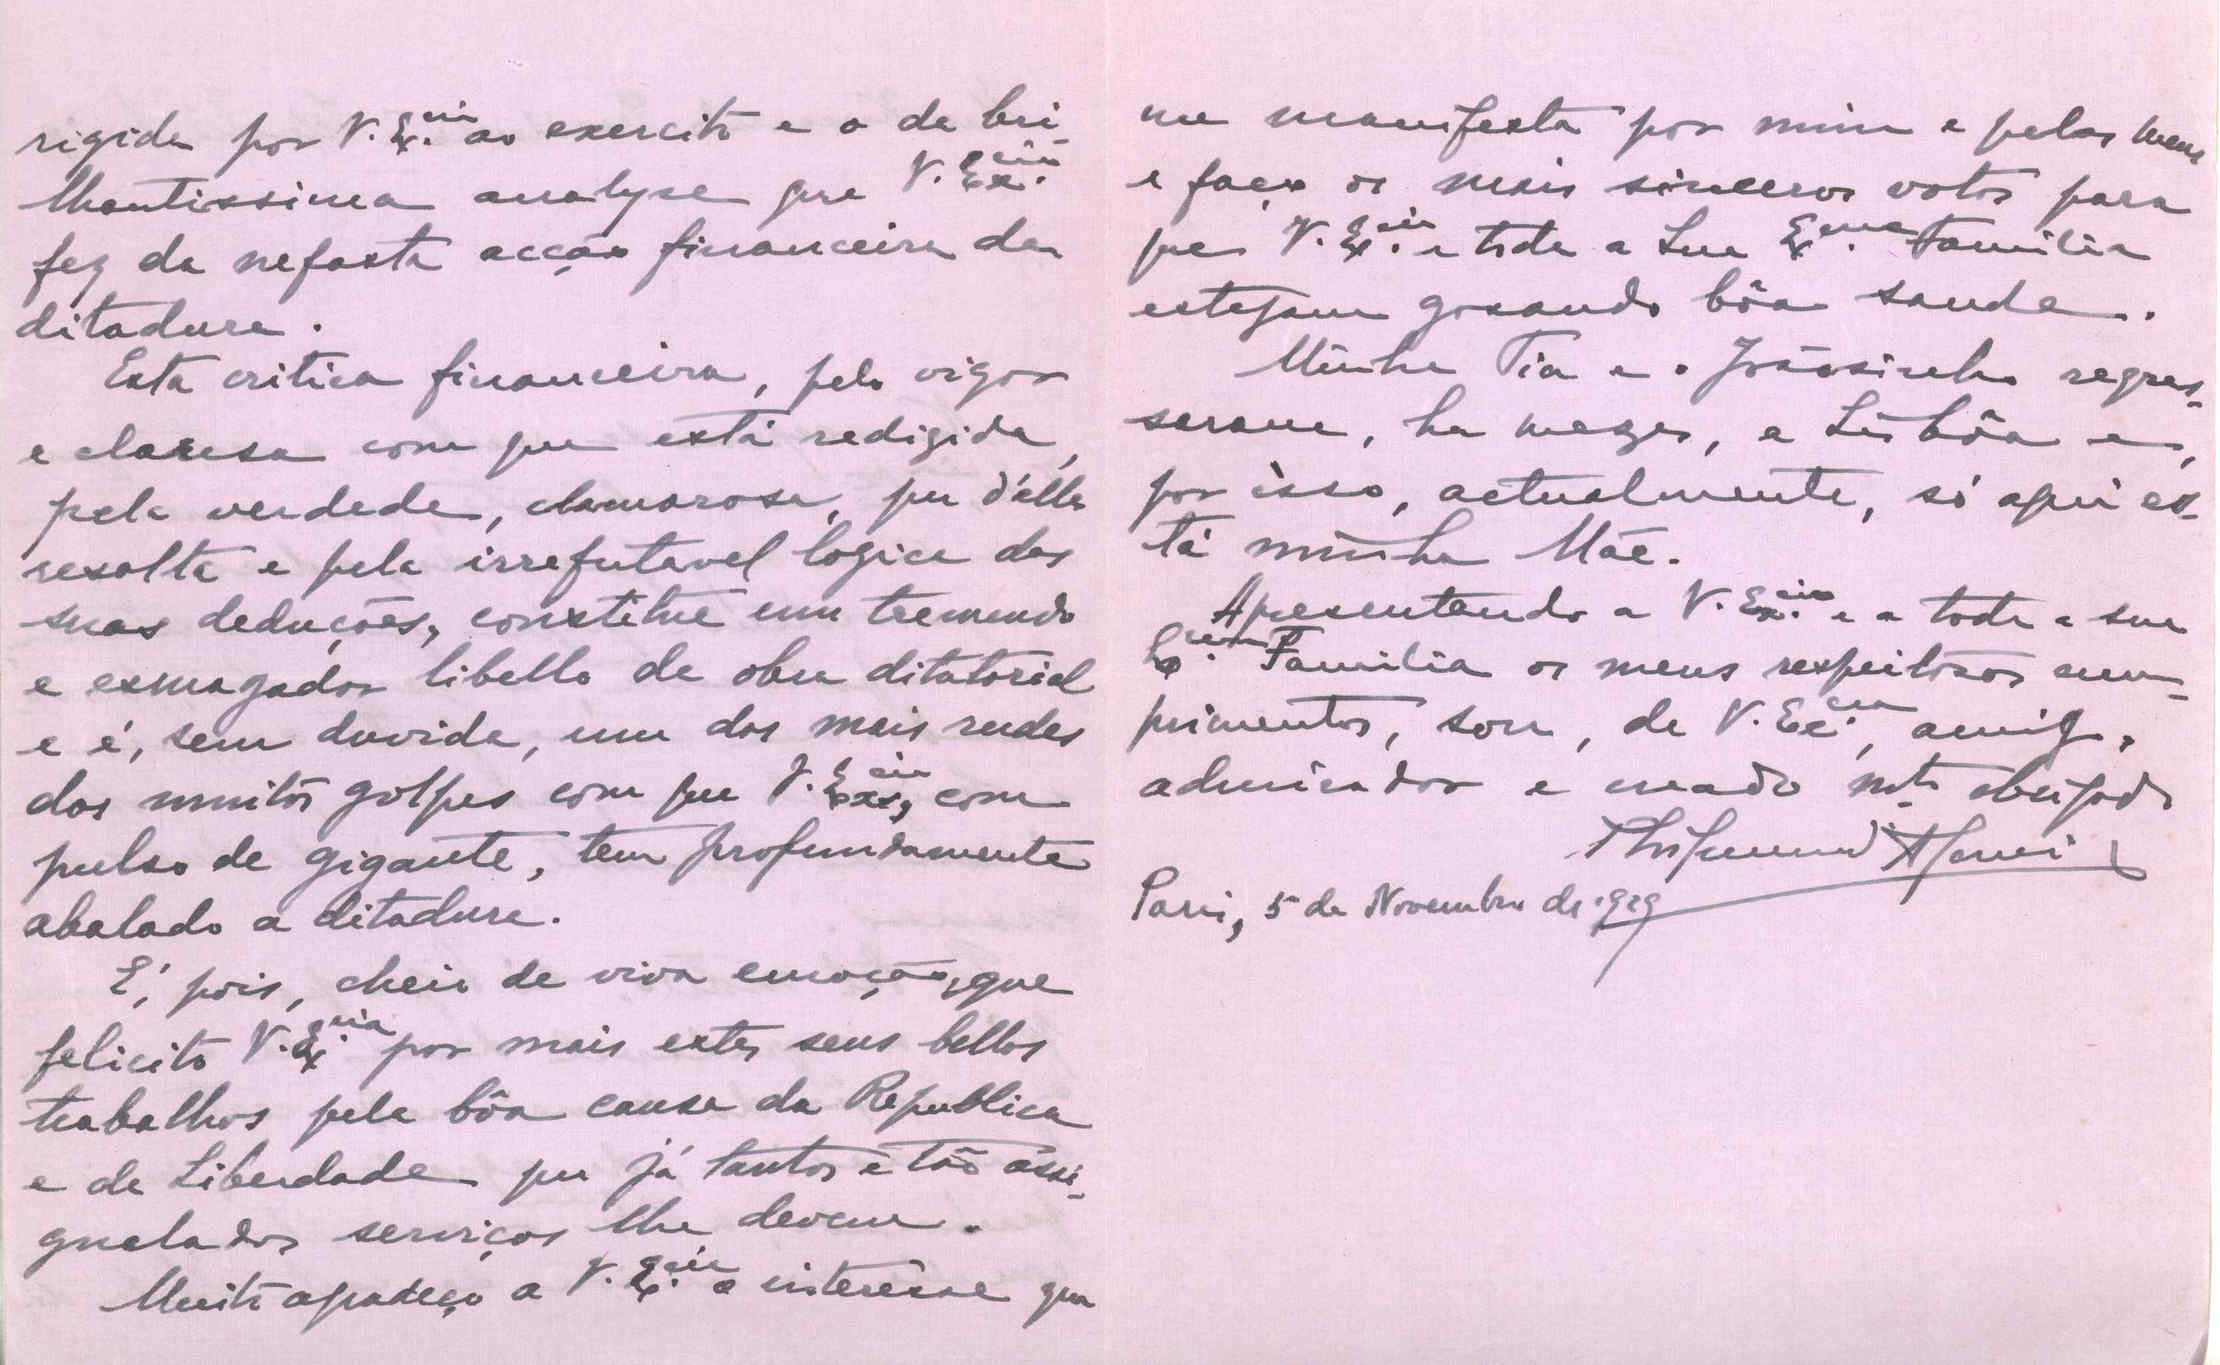 rigida por V. Ex.cia ao exercito e o da bri-
lhantissima analyse que V. Ex.cia
fez da nefasta acção financeira da
ditadura.
Esta critica financeira, pelo vigor
e claresa com que está redigida,
pela verdade, clamorosa, que d'élla
resalta e pela irrefutavel logica das
suas deduções, constitue um tremendo
e esmagador libello da obra ditatorial
e é, sem duvida, um dos mais rudes
dos muitos golpes com que V. Ex.cia, com
pulso de gigante, tem profundamente
abalado a ditadura.
É, pois, cheio de viva emoção, que
felicito V. Ex.cia por mais estes seus bellos
trabalhos pela bôa causa da Republica
e da Liberdade que já tantos e tão assi-
gnalados serviços lhe devem.
Muito agradeço a V. Ex.cia o interêsse que
me manifesta por mim e pelos meus
e faço os mais sinceros votos para
que V. Ex.cia e toda a Sua Ex.ma Familia
estejam gosando bôa saude.
Minha Tia e o Joãosinho regres-
saram, ha mezes, a Lisbôa e,
por isso, actualmente, só aqui es-
tá minha Mãe.
Apresentando a V. Ex.cia e a toda a sua
Ex.ma Familia os meus respeitosos cum-
primentos, sou, de V. Ex.cia, amigo,
admirador e creado mto obrigado
Paris, 5 de Novembro de 1929